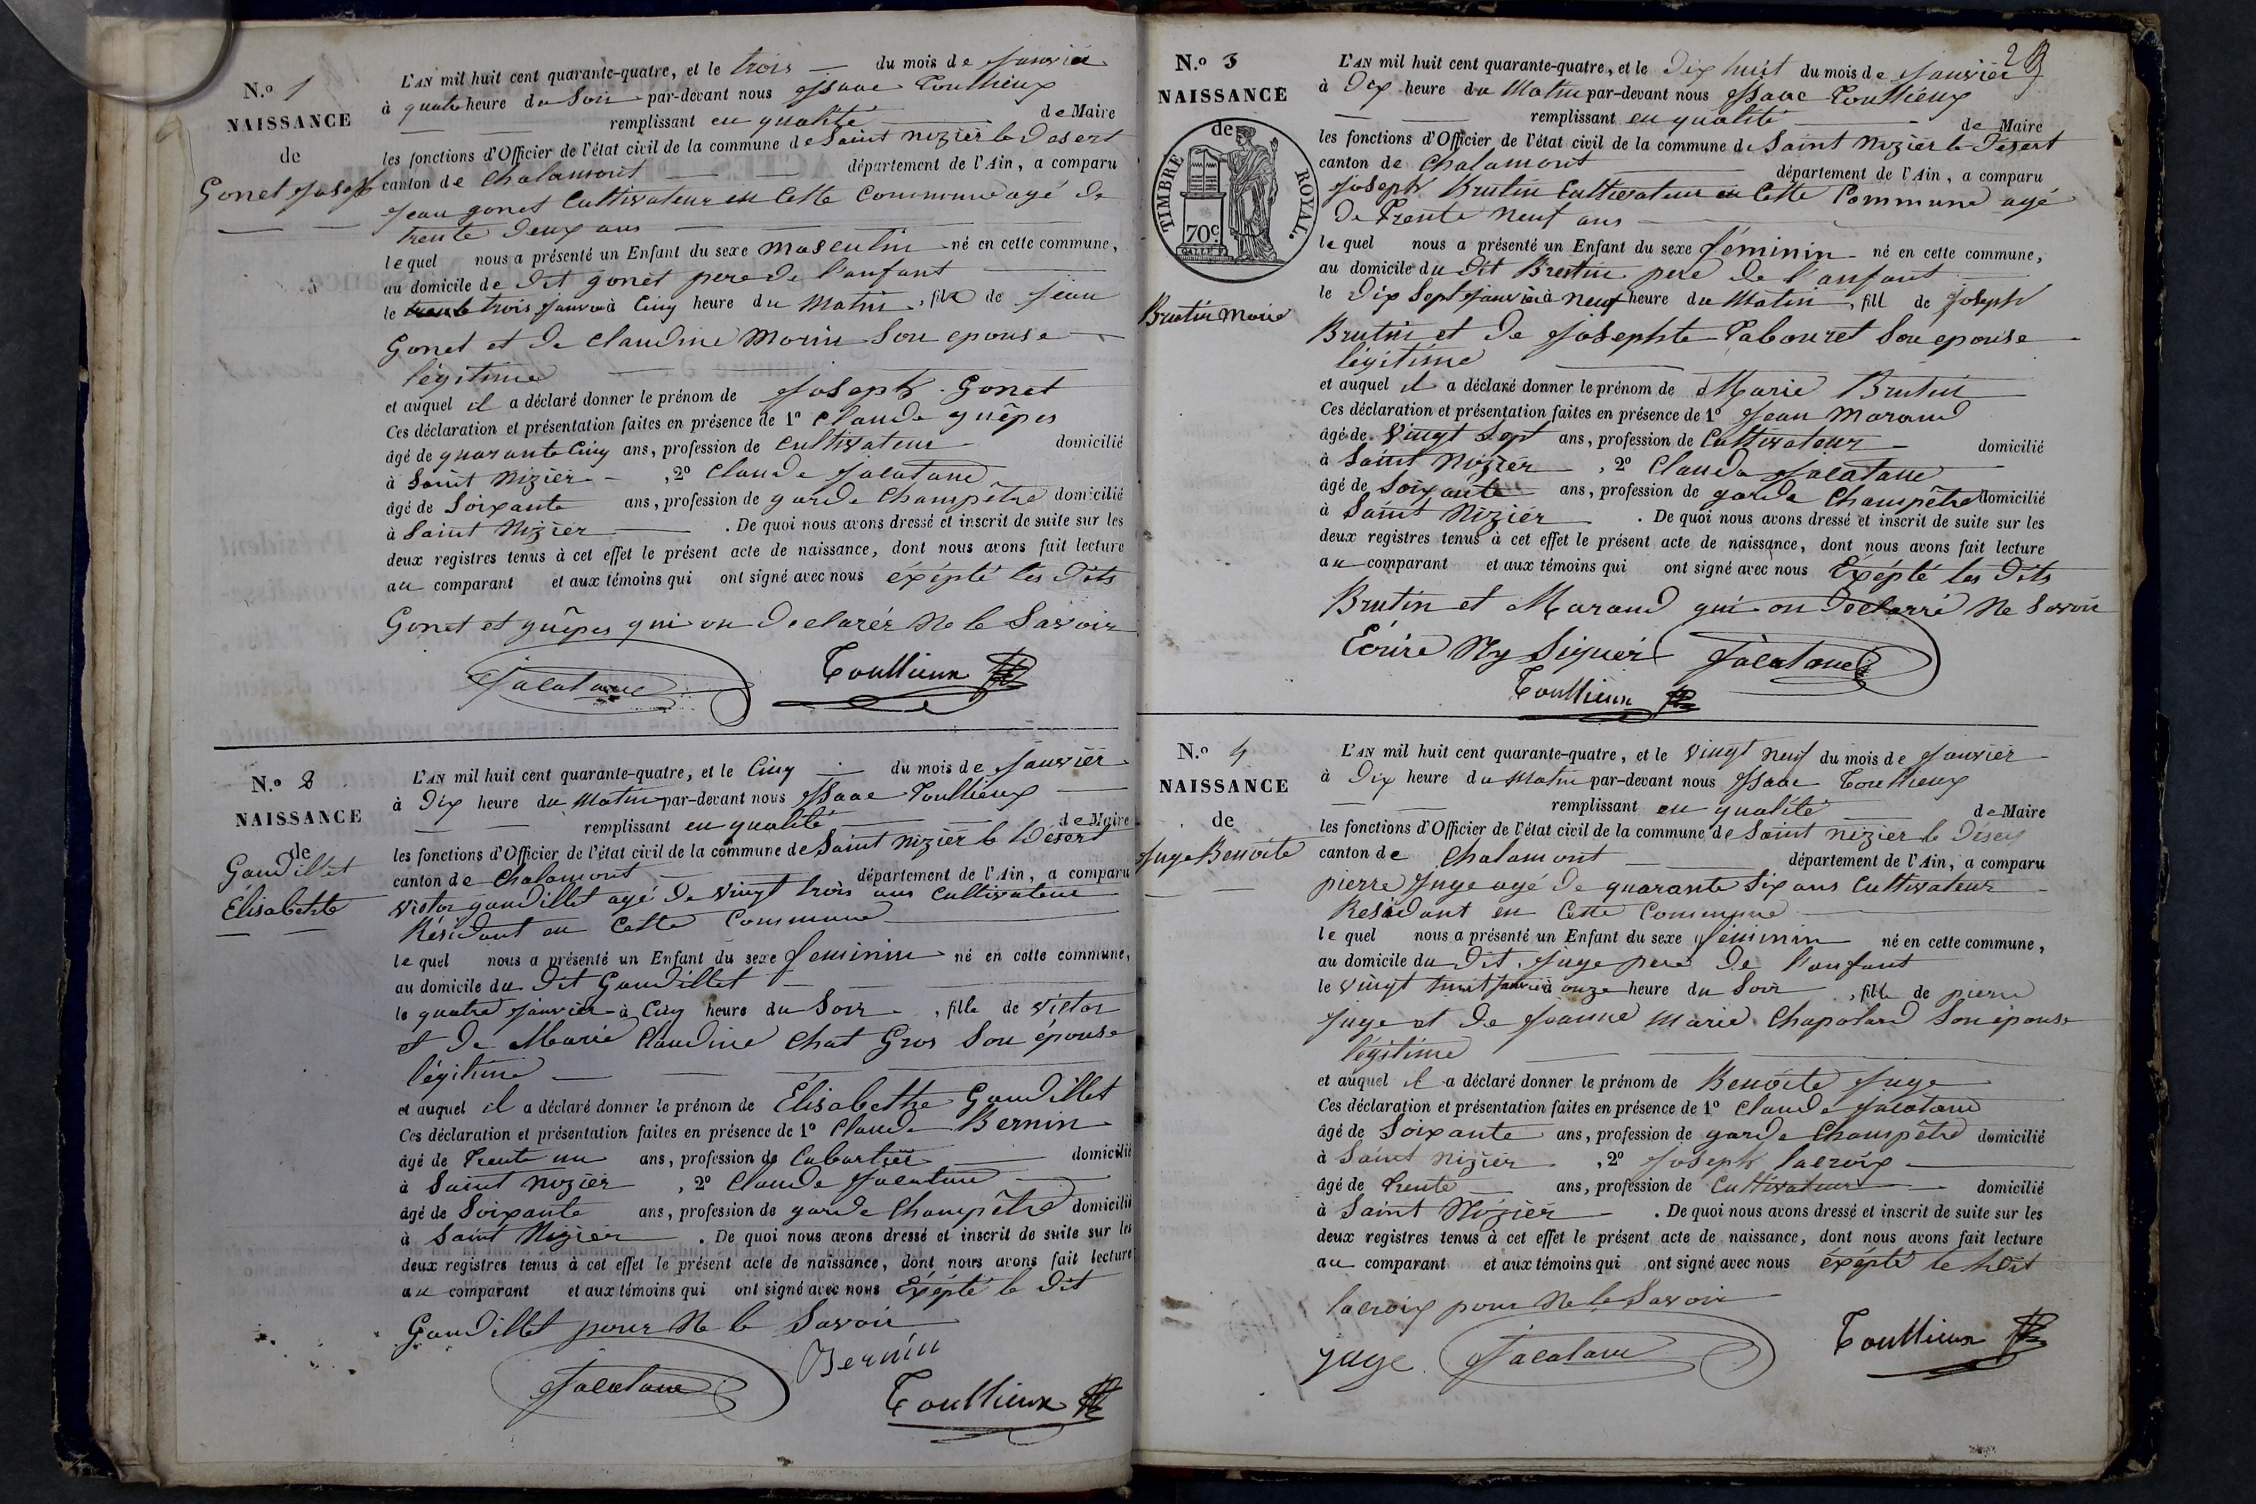 N.º 1
NAISSANCE
de
Gonet Joseph
L'AN mil huit cent quarante-quatre, et le trois du mois de Janvier
à quatre heure du Soir par-devant nous Isaac Toullieux
remplissant en qualité de Maire
les fonctions d'Officier de l'état civil de la commune de Saint Nizier le Desert
canton de Chalamont département de l'Ain, a comparu
Jean gonet Cultivateur en Cette Commune agé de
trente deux ans
lequel nous a présenté un Enfant du sexe masculin né en cette commune,
au domicile de dit gonet pere de l'anfant
le trois Janvier à Cinq heure du Matin, fils de Jean
Gonet et de Claudine Morin Son epouse
légitime
et auquel il a déclaré donner le prénom de Joseph Gonet
Ces déclaration et présentation faites en présence de 1º Claude guêpes
âgé de quarante Cinq ans, profession de Cultivateur domicilié
à Saint Nizier, 2º Claude Jacatane
âgé de Soixante ans, profession de garde Champêtre domicilié
à Saint Nizier. De quoi nous avons dressé et inscrit de suite sur les
deux registres tenus à cet effet le présent acte de naissance, dont nous avons fait lecture
au comparant et aux témoins qui ont signé avec nous éxépté les dits
Gonet et guêpes qui on declarér Ne le Savoir
Jacatane Toullieux
N.º 2
NAISSANCE
de
Gaudillet
Elisabethe
L'AN mil huit cent quarante-quatre, et le Cinq du mois de Janvier
à Dix heure du Matin par-devant nous Isaac Toullieux
remplissant en qualité de Maire
les fonctions d'Officier de l'état civil de la commune de Saint Nizier le Desert
canton de Chalamont département de l'Ain, a comparu
Victor gaudillet agé de vingt trois ans Cultivateur
Résidant en Cette Commune
lequel nous a présenté un Enfant du sexe feminin né en cette commune,
au domicile du dit Gaudillet
le quatre Janvier à Cinq heure du Soir, fille de Victor
et de Marie Claudine Chat Gros Son épouse
légitime
et auquel il a déclaré donner le prénom de Elisabethe Gaudillet
Ces déclaration et présentation faites en présence de 1º Claude Bernin
âgé de Trente un ans, profession de Cabartier domicilié
à Saint Nizier, 2º Claude Jacatane
âgé de Soixante ans, profession de garde Champêtre domicilié
à Saint Nizier. De quoi nous avons dressé et inscrit de suite sur les
deux registres tenus à cet effet le présent acte de naissance, dont nous avons fait lecture
au comparant et aux témoins qui ont signé avec nous Éxépté le dit
Gaudillet pour Ne le Savoir
Bernin
Jacatane
Toullieux
N.º 3
NAISSANCE
de
TIMBRE ROYAL.
70c
Brutin Marie
L'AN mil huit cent quarante-quatre, et le Dix huit du mois de Janvier
à Dix heure du Matin par-devant nous Isaac Toullieux
remplissant en qualité de Maire
les fonctions d'Officier de l'état civil de la commune de Saint Nizier le Désert
canton de Chalamont département de l'Ain, a comparu
Joseph Brutin Cultivateur en Cette Commune agé
de Trente Neuf ans
lequel nous a présenté un Enfant du sexe féminin né en cette commune,
au domicile du dit Brutin pere de l'anfant
le Dix Sept Janvier à Neuf heure du Matin, fill de Joseph
Brutin et de Josephte Tabouret Son epouse
légitime
et auquel il a déclaré donner le prénom de Marie Brutin
Ces déclaration et présentation faites en présence de 1º Jean Maraud
âgé de Vingt Sept ans, profession de Cultivateur domicilié
à Saint Nizier, 2º Claude Jacatane
âgé de Soixante ans, profession de garde Champêtre domicilié
à Saint Nizier. De quoi nous avons dressé et inscrit de suite sur les
deux registres tenus à cet effet le présent acte de naissance, dont nous avons fait lecture
au comparant et aux témoins qui ont signé avec nous Éxépté les dits
Brutin et Maraud qui on declarré Ne Savoir
Ecrire Ny Signer Jacatane
Toullieux
N.º 4
NAISSANCE
de
Juge Benoite
L'AN mil huit cent quarante-quatre, et le vingt neuf du mois de Janvier
à Dix heure du Matin par-devant nous Isaac Toullieux
remplissant en qualité de Maire
les fonctions d'Officier de l'état civil de la commune de Saint Nizier le Désert
canton de Chalamont département de l'Ain, a comparu
pierre Juge agé de quarante Six ans Cultivateur
Residant en Cette Commune
lequel nous a présenté un Enfant du sexe féminin né en cette commune,
au domicile du dit Juge pere de l'anfant
le vingt huit Janvier à onze heure du Soir, fille de pierre
Juge et de Jeanne Marie Chapoland Son épouse
légitime
et auquel il a déclaré donner le prénom de Benoite Juge
Ces déclaration et présentation faites en présence de 1º Claude Jacatane
âgé de Soixante ans, profession de garde Champêtre domicilié
à Saint Nizier, 2º Joseph lacroix
âgé de trente ans, profession de Cultivateur domicilié
à Saint Nizier. De quoi nous avons dressé et inscrit de suite sur les
deux registres tenus à cet effet le présent acte de naissance, dont nous avons fait lecture
au comparant et aux témoins qui ont signé avec nous éxépté le dit
lacroix pour Ne le Savoir
juge Jacatane Toullieux